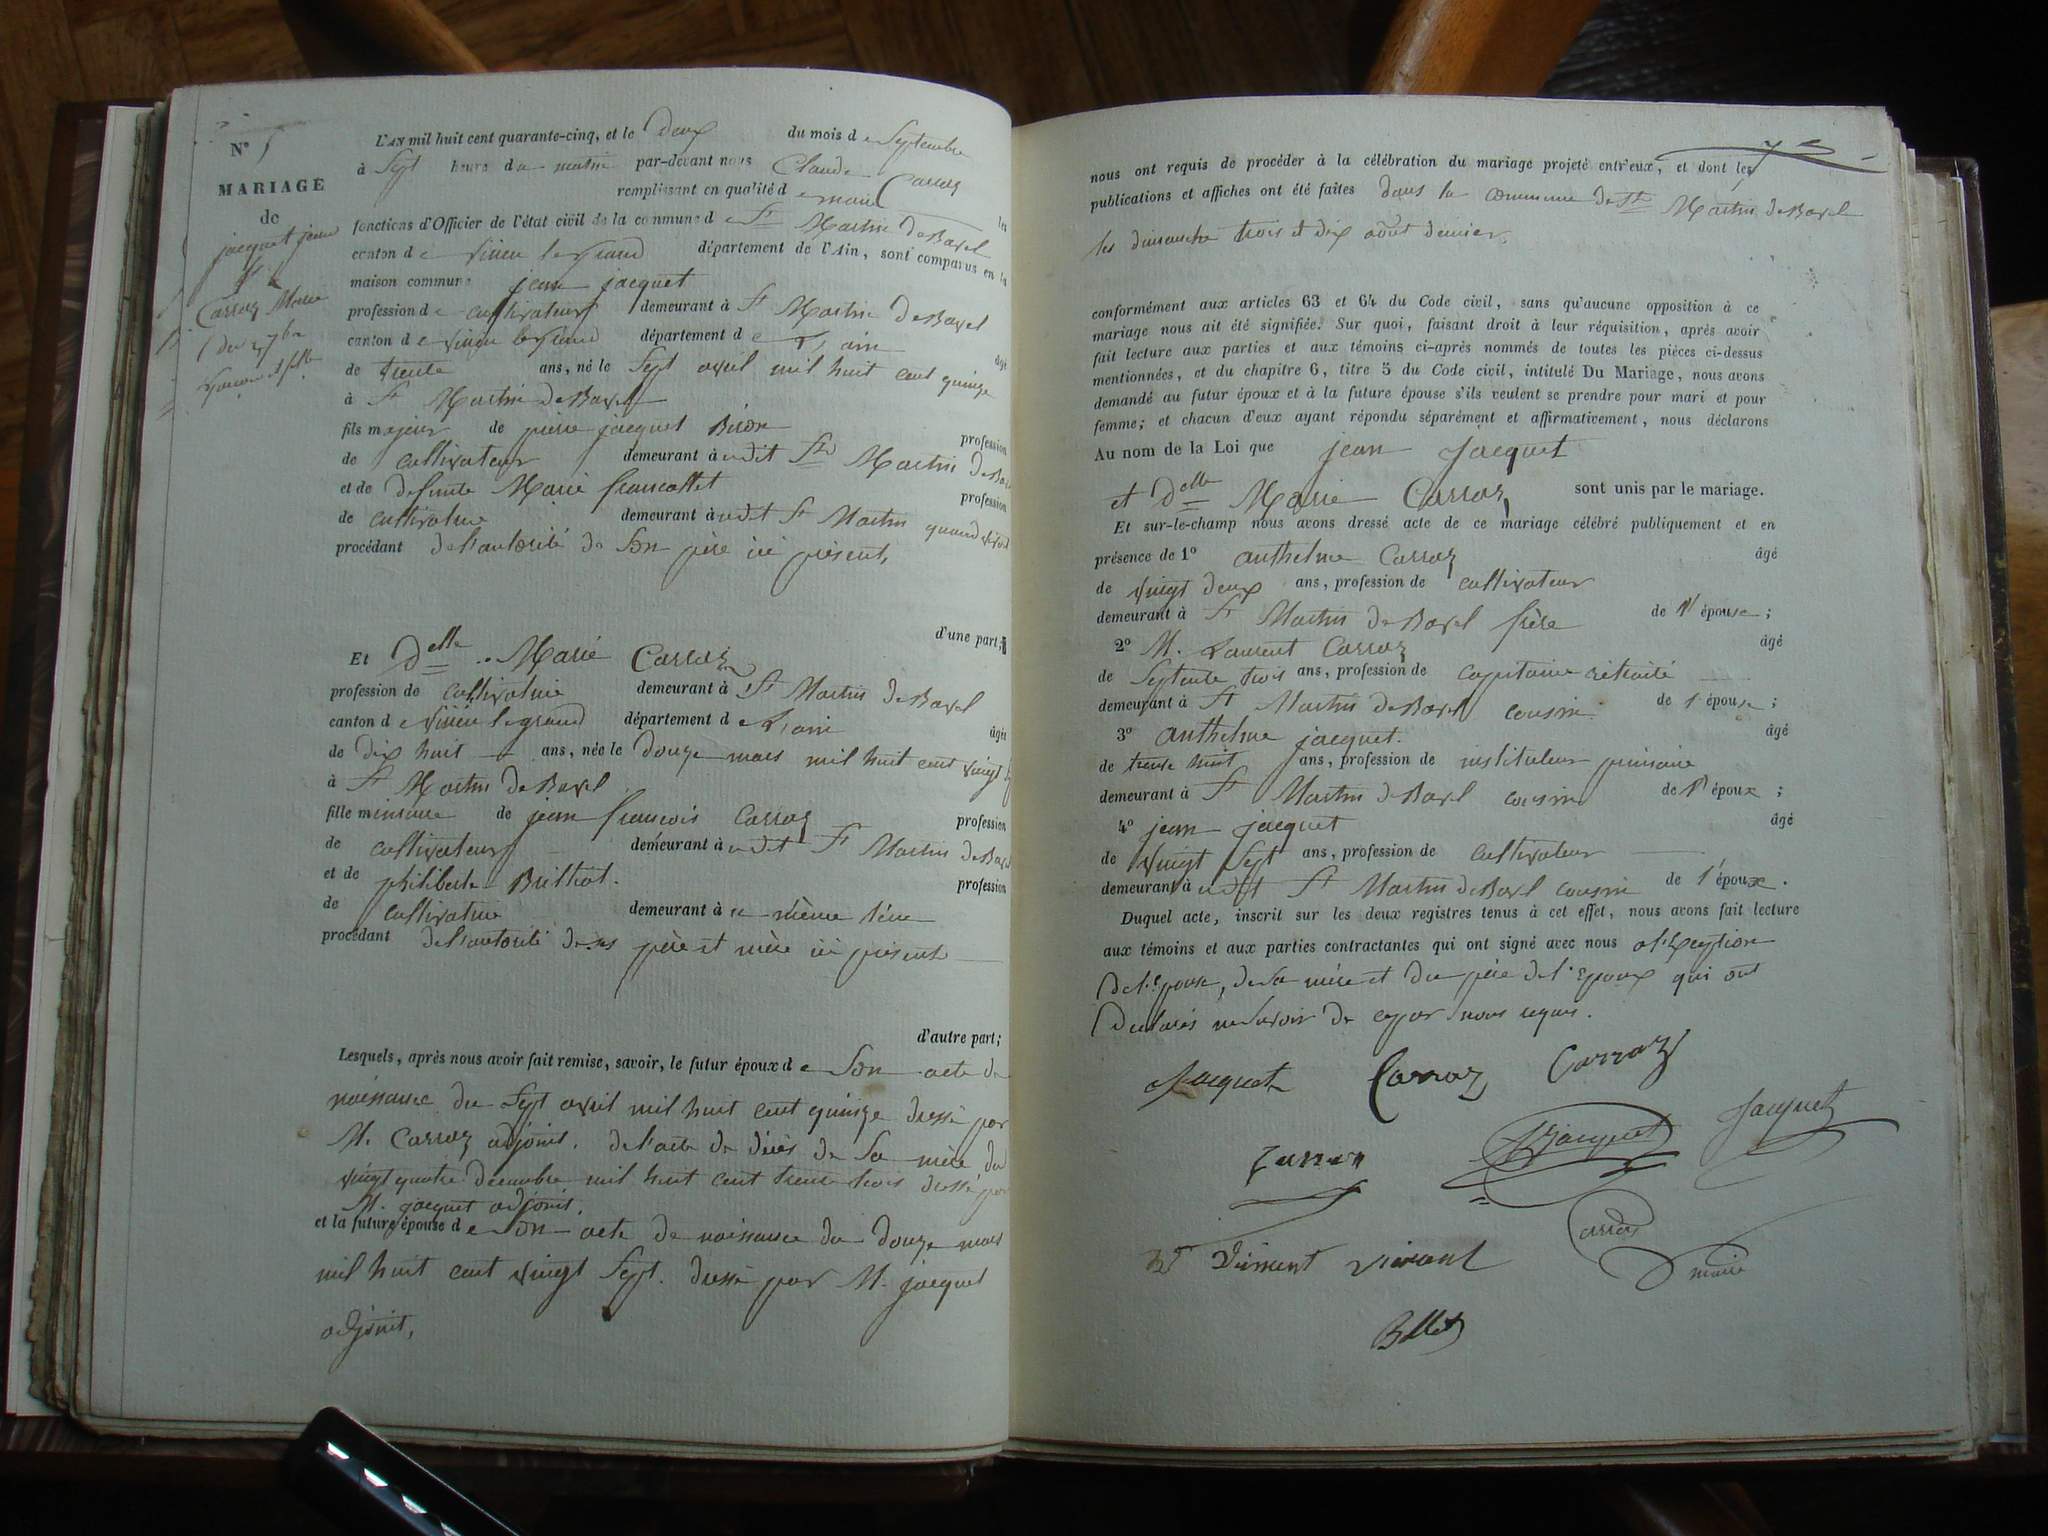 N° 5
MARIAGE
de
jacquet jean
et
Carraz Marie
du 2 7bre
garcon et fille
L'AN mil huit cent quarante-cinq, et le deux du mois de Septembre
à Sept heure du matin par-devant nous Claude Carraz
remplissant en qualité de maire les
fonctions d'Officier de l'état civil de la commune de St Martin de Bavel
canton de virieu le grand département de l'Ain, sont comparus en la
maison commune jean jacquet
profession de cultivateur demeurant à St Martin de Bavel
canton de virieu le grand département de L'ain âgé
de trente ans, né le Sept avril mil huit cent quinze
à St Martin de Bavel
fils majeur de pierre jacquet Biron profession
de cultivateur demeurant à udit St Martin de Bavel
et de defunte Marie francottet profession
de cultivatrice demeurant à udit St Martin quand vivait
procédant de l'autorité de Son père ici présent,
d'une part;
Et Delle Marie Carraz
profession de cultivatrice demeurant à St Martin de Bavel
canton de virieu le grand département de L'ain âgée
de dix huit ans, née le douze mars mil huit cent vingt
à St Martin de Bavel
fille mineure de jean francois Carraz profession
de cultivateur demeurant à udit St Martin de Bavel
et de philiberte Brilliat. profession
de cultivatrice demeurant à u même lieu
procédant de l'autorité de ses père et mère ici présent
d'autre part;
Lesquels, après nous avoir fait remise, savoir, le futur époux de Son acte de
naissance du Sept avril mil huit cent quinze dressé par
M. Carraz adjoint. de l'acte de décès de Sa mère du
vingt quatre decembre mil huit cent trente trois dressé par
M. jacquet adjoint.
et la future épouse de Son acte de naissance du douze mars
mil huit cent vingt Sept. dressé par M. jacquet
adjoint,
nous ont requis de procéder à la célébration du mariage projeté entr'eux, et dont les
publications et affiches ont été faites dans la commune de St Martin de Bavel
les dimanche trois et dix août dernier.
conformément aux articles 63 et 64 du Code civil, sans qu'aucune opposition à ce
mariage nous ait été signifiée. Sur quoi, faisant droit à leur réquisition, après avoir
fait lecture aux parties et aux témoins ci-après nommés de toutes les pièces ci-dessus
mentionnées, et du chapitre 6, titre 5 du Code civil, intitulé Du Mariage, nous avons
demandé au futur époux et à la future épouse s'ils veulent se prendre pour mari et pour
femme; et chacun d'eux ayant répondu séparément et affirmativement, nous déclarons
Au nom de la Loi que jean Jacquet
et Delle Marie Carraz, sont unis par le mariage.
Et sur-le-champ nous avons dressé acte de ce mariage célébré publiquement et en
présence de 1° anthelme Carraz âgé
de vingt deux ans, profession de cultivateur
demeurant à St Martin de Bavel frère de l'épouse;
2° M. Laurent Carraz âgé
de Septente trois ans, profession de capitaine retraité
demeurant à St Martin de Bavel cousin de l'épouse;
3° anthelme jacquet. âgé
de trente huit ans, profession de instituteur primaire
demeurant à St Martin de Bavel cousin de l'époux;
4° jean Jacquet âgé
de vingt Sept ans, profession de cultivateur
demeurant à udit St Martin de Bavel cousin de l'époux.
Duquel acte, inscrit sur les deux registres tenus à cet effet, nous avons fait lecture
aux témoins et aux parties contractantes qui ont signé avec nous a l'exeption
de l'epouse, de sa mère et du père de l'epoux qui ont
declarés ne savoir de ce par nous requis.
Jacquet Carraz Carraz
Jacquet Jacquet
Carraz
maire
Vincent Vincent
Billet